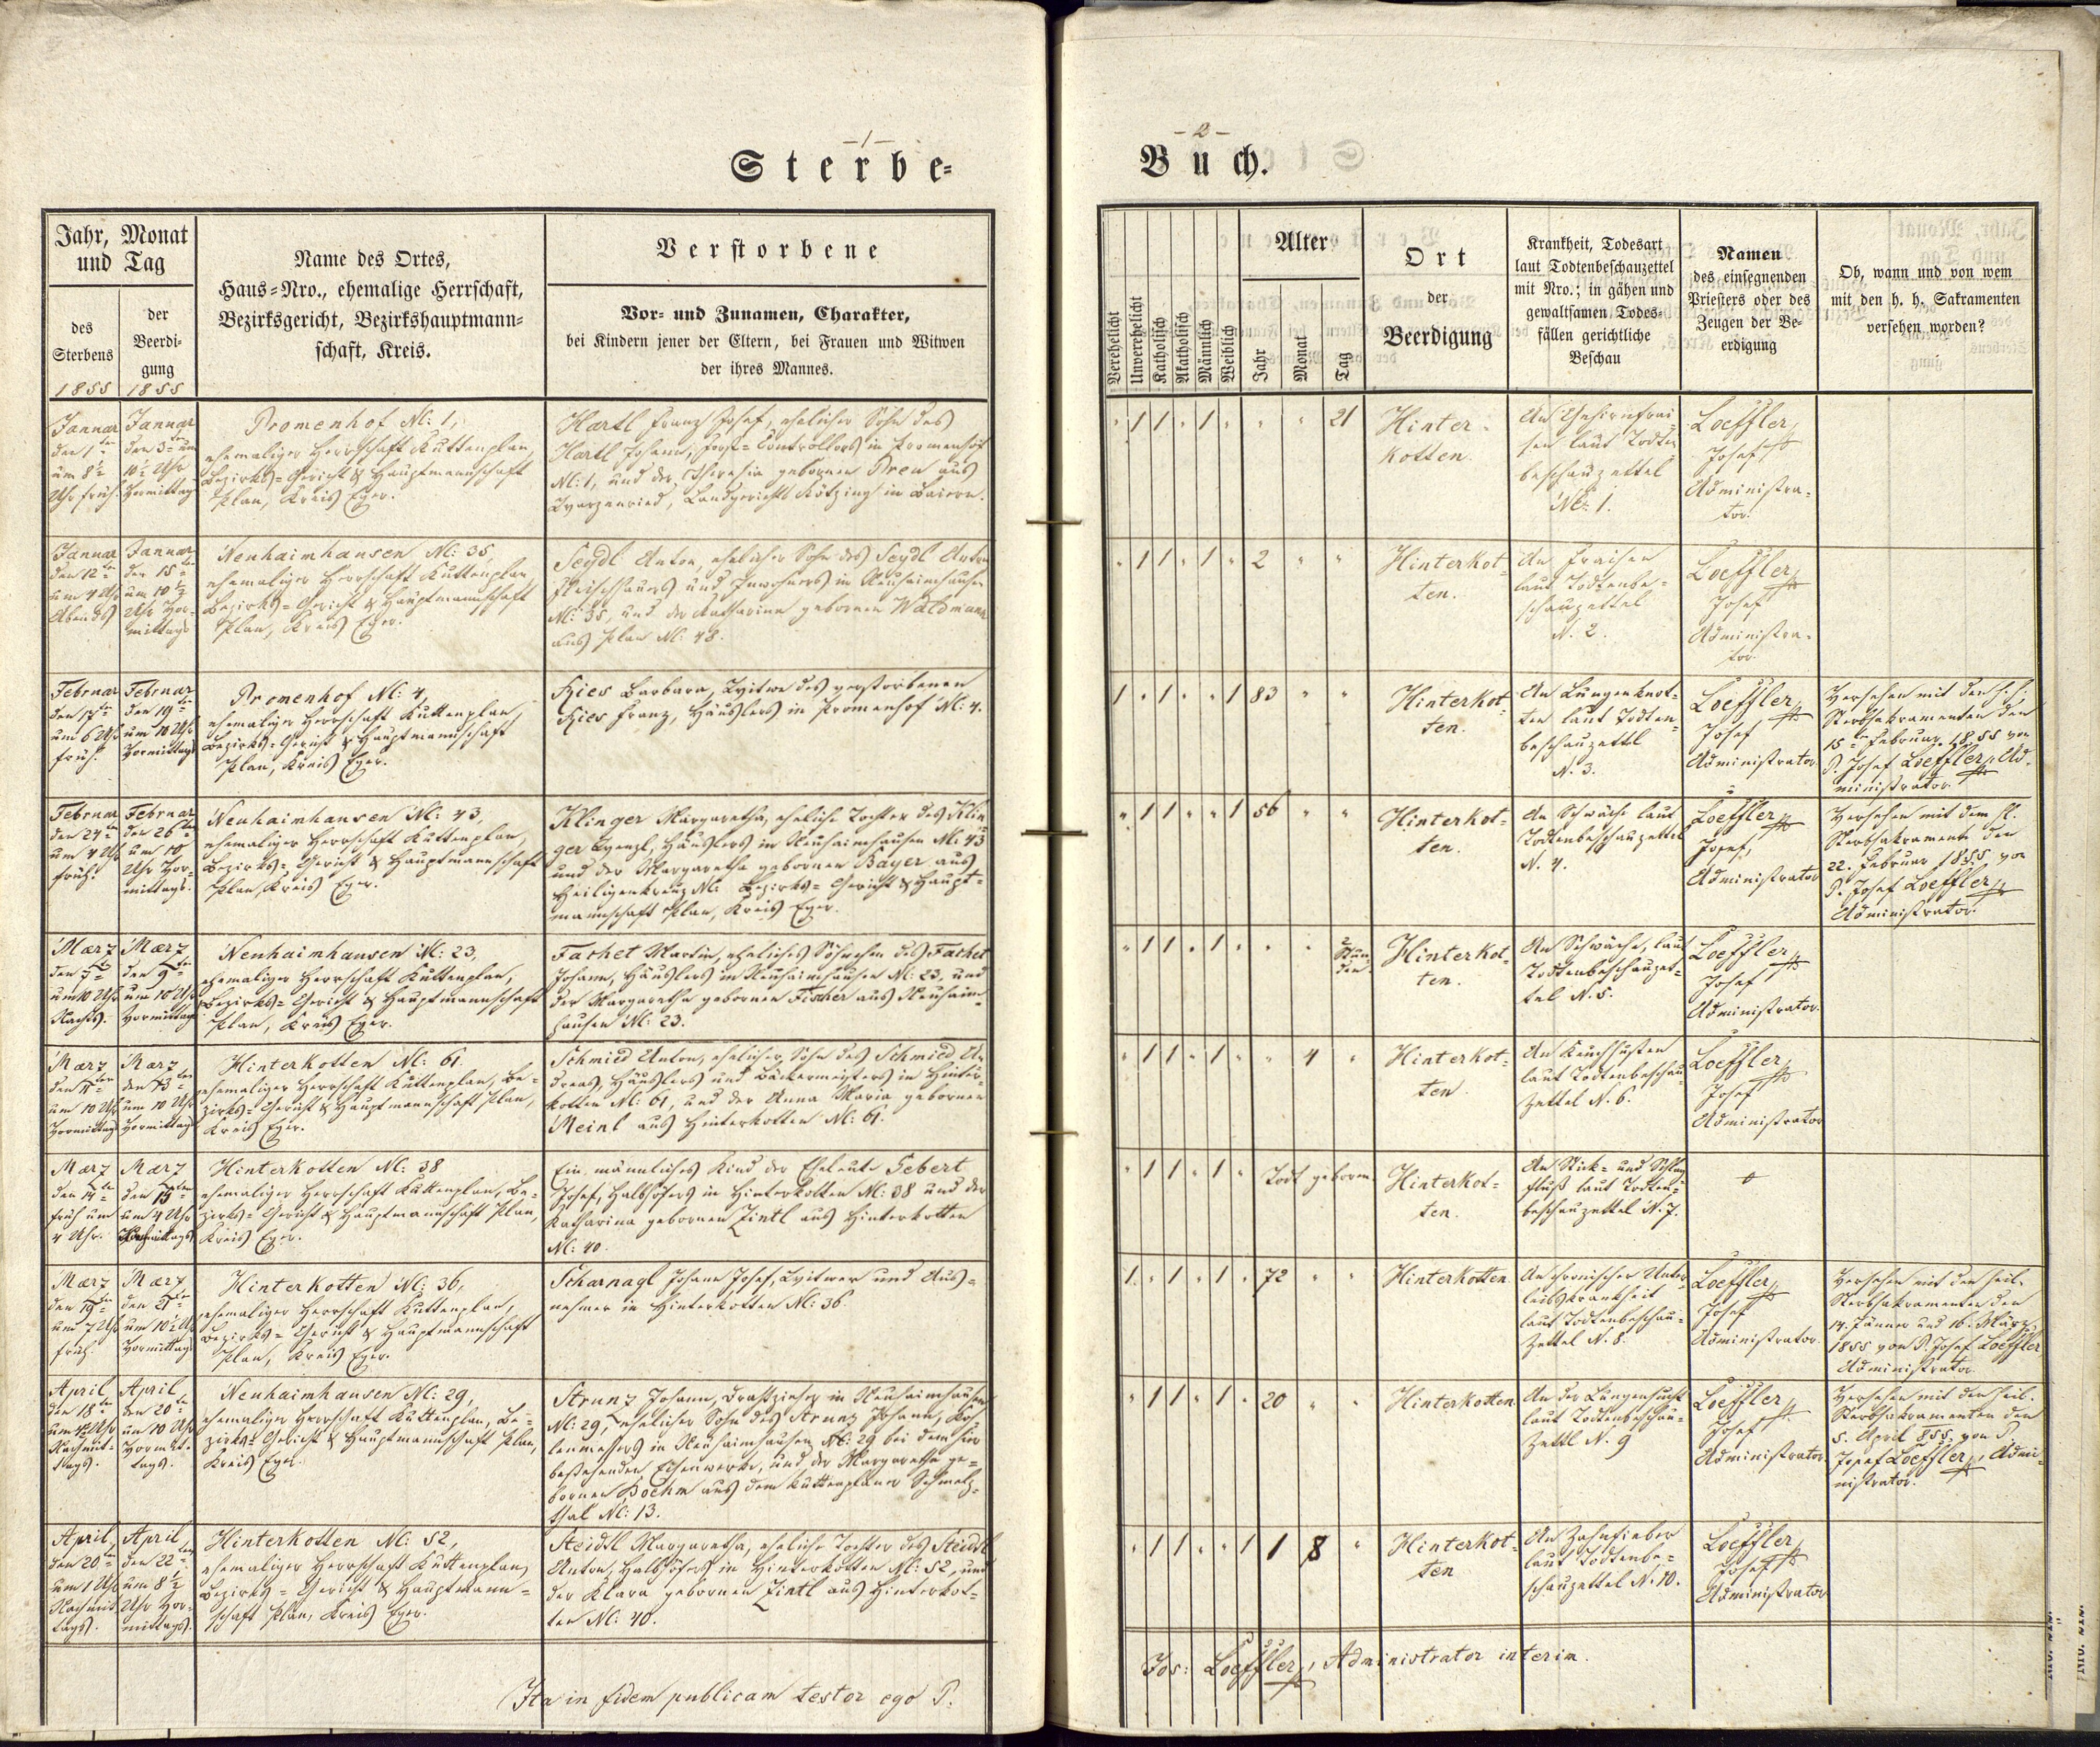 -1-
Sterbe=
Jahr, Monat
und Tag
des
Sterbens
1855
der
Beerdi-
gung
1855
Name des Ortes,
Haus=Nro., ehemalige Herrschaft,
Bezirksgericht, Bezirkshauptmann=
schaft, Kreis.
Verstorbene
Vor- und Zunamen, Charakter,
bei Kindern jener der Eltern, bei Frauen und Witwen
der ihres Mannes.
Januar
den 1ten
um 8½
Uhr früh.
Januar
den 3ten um
10½ Uhr
Vormittag
Promenhof N: 1,
ehemaliger Herrschaft Kuttenplan,
Bezirks=Gericht & Hauptmannschaft
Plan, Kreis Eger.
Hartl Franz Josef, ehelicher Sohn des
Hartl Johann, Forst=Controllors in Promenhof
N: 1, und der Theresia gebornen Pren aus
Landgerichts Kötzing in Baiern.
Januar
den 12ten
um 4 Uhr
Abends
Januar
den 15ten
um 10½
Uhr Vor-
mittags
Neuhaimhausen N: 35,
ehemaliger Herrschaft Kuttenplan
Bezirks=Gericht & Hauptmannschaft
Plan, Kreis Eger.
Seydl Anton, ehelicher Sohn des Seydl Anton
Fleischhauers und Inwohners in Neuhaimhausen
N: 35, und der Katharina gebornen Waldmann
aus Plan N: 48.
Februar
den 17ten
um 6 Uhr
früh.
Februar
den 19ten
um 10 Uhr
Vormittags
Promenhof N: 4,
ehemaliger Herrschaft Kuttenplan,
Bezirks=Gericht & Hauptmannschaft
Plan, Kreis Eger.
Kies Barbara, Witwe des verstorbenen
Kies Franz, Häuslers in Promenhof N: 4.
Februar
den 24ten
um 4 Uhr
früh.
Februar
den 26ten
um 10
Uhr Vor-
mittags.
Neuhaimhausen N: 43,
ehemaliger Herrschaft Kuttenplan
Bezirks=Gericht & Hauptmannschaft
Plan, Kreis Eger.
Klinger Margaretha, eheliche Tochter des Klin=
ger Wenzl, Häuslers in Neuhaimhausen N: 43
und der Margaretha gebornen Bayer aus
Heiligenkreuz N: Bezirks=Gericht & Haupt=
mannschaft Plan, Kreis Eger.
Maerz
den 7ten
um 10 Uhr
Nachts.
Maerz
den 9ten
um 10 Uhr
Vormittag
Neuhaimhausen N: 23,
ehemaliger Herrschaft Kuttenplan,
Bezirks=Gericht & Hauptmannschaft
Plan, Kreis Eger.
Fachet Martin, eheliches Söhnchen des Fachet
Johann, Häuslers in Neuhaimhausen N: 23, und
der Margaretha gebornen Fischer aus Neuhaim=
hausen N: 23.
Maerz
den 11ten
um 10 Uhr
Vormittag
Maerz
den 13ten
um 10 Uhr
Vormittag
Hinterkotten N: 61.
ehemaliger Herrschaft Kuttenplan, Be=
zirks=Gericht & Hauptmannschaft Plan,
Kreis Eger.
Schmied Anton, ehelicher Sohn des Schmied An
dreas, Häuslers und Bäckermeisters in Hinter=
kotten N: 61, und der Anna Maria gebornen
Meinl aus Hinterkotten N: 61.
Maerz
den 14ten
früh um
4 Uhr.
Maerz
den 15ten
um 4 Uhr
Hinterkotten N: 38
ehemaliger Herrschaft Kuttenplan, Be=
zirks=Gericht & Hauptmannschaft Plan,
Kreis Eger.
Ein männliches Kind der Eheleute Gebert
Josef, Halbhöfers in Hinterkotten N: 38 und der
Katharina gebornen Zintl aus Hinterkotten
N: 40.
Maerz
den 19ten
um 7 Uhr
früh
Maerz
den 21ten
um 10½ Uhr
Vormittag
Hinterkotten N: 36,
ehemaliger Herrschaft Kuttenplan,
Bezirks=Gericht & Hauptmannschaft
Plan, Kreis Eger.
Scharnagl Johann Josef, Witwer und Aus=
nehmer in Hinterkotten N: 36.
April
den 18ten
Nachmit-
tags.
April
den 20ten
um 10 Uhr
Vormit-
tags.
Neuhaimhausen N: 29,
ehemaliger Herrschaft Kuttenplan, Be=
zirks=Gericht & Hauptmannschaft Plan,
Kreis Eger.
Strunz Johann, Drahtzieher in Neuhaimhausen
N: 29, ehelicher Sohn des Strunz Johann, Koh=
lenmessers in Neuhaimhausen N: 29 bei dem hier
bestehenden Eisenwerke, und der Margaretha ge=
bornen Boehm aus dem Kuttenplaner Schmelz=
thal N: 13.
April
den 20ten
um 1 Uhr
Nachmit
tags.
April
den 22ten
um 8½
Uhr Vor-
mittags.
Hinterkotten N: 52,
ehemaliger Herrschaft Kuttenplan,
Bezirks=Gericht & Hauptmann=
schaft Plan, Kreis Eger.
Steidl Margaretha, eheliche Tochter des Steidl
Anton, Halbhöfers in Hinterkotten N: 52, und
der Klara gebornen Zintl aus Hinterkot=
ten N: 40.
Ita in fidem publicam testor ego P.
-2-
Buch.
Verehelicht
Unverehelicht
Katholisch
Akatholisch
Männlich
Weiblich
Alter
Jahr
Monat
Tag
Ort
der
Beerdigung
Krankheit, Todesart
laut Todtenbeschauzettel
mit Nro.; in gähen und
gewaltsamen Todes=
fällen gerichtliche
Beschau
Namen
des einsegnenden
Priesters oder des
Zeugen der Be-
erdigung
Ob, wann und von wem
mit den h. h. Sakramenten
versehen worden?
" 1 1 " 1 " " " 21
Hinter=
kotten.
An Gehirnfrai
sen laut Todten
beschauzettel
No. 1.
Loeffler
Josef
Administra=
tor.
" 1 1 " 1 " 2 " "
Hinterkot
ten.
An Fraisen
laut Todtenbe=
schauzettel
N. 2.
Loeffler
Josef
Administra=
tor.
1 " 1 " " 1 83 " "
Hinterkot
ten.
An Lungenknot=
ten laut Todten=
beschauzettel
N. 3.
Loeffler
Josef
Administrator
Versehen mit den h. h.
Sterbsakramenten den
15ten Februar 1855 von
P. Josef Loeffler, Ad=
ministrator
" 1 1 " " 1 56 " "
Hinterkot=
ten.
An Schwäche laut
Todtenbeschauzettel
N. 4.
Loeffler
Josef,
Administrator
Versehen mit dem hl.
Sterbsakramente den
22. Februar 1855 von
P. Josef Loeffler
Administrator.
" 1 1 " 1 " " " 2 Stun den
Hinterkot=
ten.
An Schwäche, laut
Todtenbeschauzet=
tel N. 5.
Loeffler
Josef
Administrator.
" 1 1 " 1 " " 4 "
Hinterkot=
ten.
An Keuchhusten
laut Todtenbeschau
Zettel N. 6.
Loeffler
Josef
Administrator
" 1 1 " 1 " Todt geboren.
Hinterkot=
ten.
An Stick= und Schlag
fluß laut Todten=
beschauzettel N. 7.
1 " 1 " 1 " 72 " "
Hinterkotten
An chronischer Unter
leibskrankheit
laut Todtenbeschau=
Zettel N. 8.
Loeffler
Josef
Administrator.
Versehen mit den heil.
Sterbsakramenten den
14. Jänner und 16. März
1855 von P. Josef Loeffler
Administrator
" 1 1 " 1 " 20 " "
Hinterkotten
An der Lungensucht
laut Todtenbeschau=
Zettl N. 9
Loeffler
Josef
Administrator.
Versehen mit den heil.
Sterbsakramenten den
5. April 855 von P.
Josef Loeffler, Admi=
nistrator.
" 1 1 " " 1 1 8 "
Hinterkot=
ten
An Zahnfieber
laut Todtenbe=
schauzettel N. 10.
Loeffler
Josef
Administrator
Jos: Loeffler, Administrator interim.